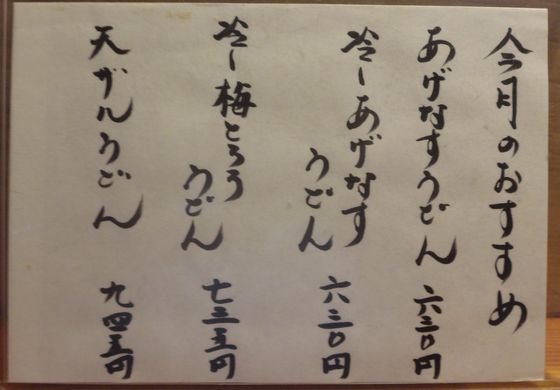 今月のおすすめ
あげなすうどん 六三〇円
冷しあげなす
うどん 六三〇円
冷し梅とろろ
うどん 七三五円
天ザルうどん 九四五円